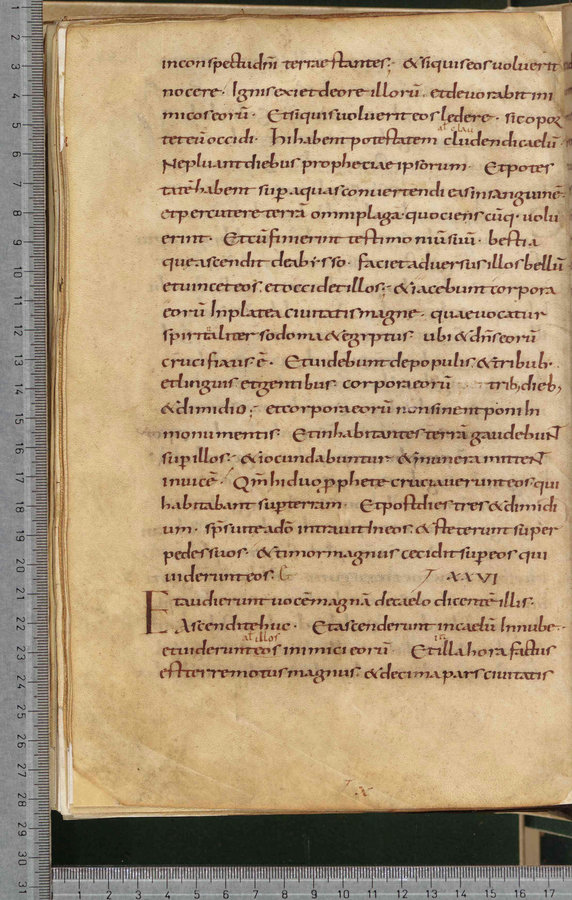 inconspectudnī terrae stantes; &siquiseosvoluerit
nocere. Ignis exiet deore illorū. etdevorabit ini
micos eorū. Etsiquis voluerit eos ledere. sic opor
al clau
teteū occidi. hi habent potestatem cludendi caelū
Nepluant diebus prophetiae ipsorum. Et potes
tatē habent sup aquas convertendi eas in sanguinē.
et percutere terrā omni plaga. quociens cūq. volu
erint. Et cū finierint testimonium suū. bestia
quae ascendit de abisso. faciet adversus illos bellū
et vincet eos. et occidet illos; & iacebunt corpora
eorū In platea civitatis magne. quae vocatur
spiritaliter sodoma & egyptus. ubi & dn̄s eorū
crucifixus ē. Et videbunt de populis & tribub.
et linguis et gentibus. corpora eorū trib; dieb;
& dimidio; et corpora eorū non sinent poni In
monumentis. Et inhabitantes terrā gaudebunt
sup illos. & iocundabuntur. & munera mittent
invicē. Qm̄ hi duo pphete cruciaverunt eos qui
habitabant sup terram. Et post dies tres & dimidi
um. sp̄s vite a dō intravit In eos. & steterunt super
pedes suos. & timor magnus cecidit sup eos qui
viderunt eos.
XXVI
Et audierunt vocē magnā de caelo dicentē illis.
Ascendite huc. Et ascenderunt in caelū In nube.
al illos
et viderunt eos inimici eorū. Et illa hora factus
est terremotus magnus. & decima pars civitatis